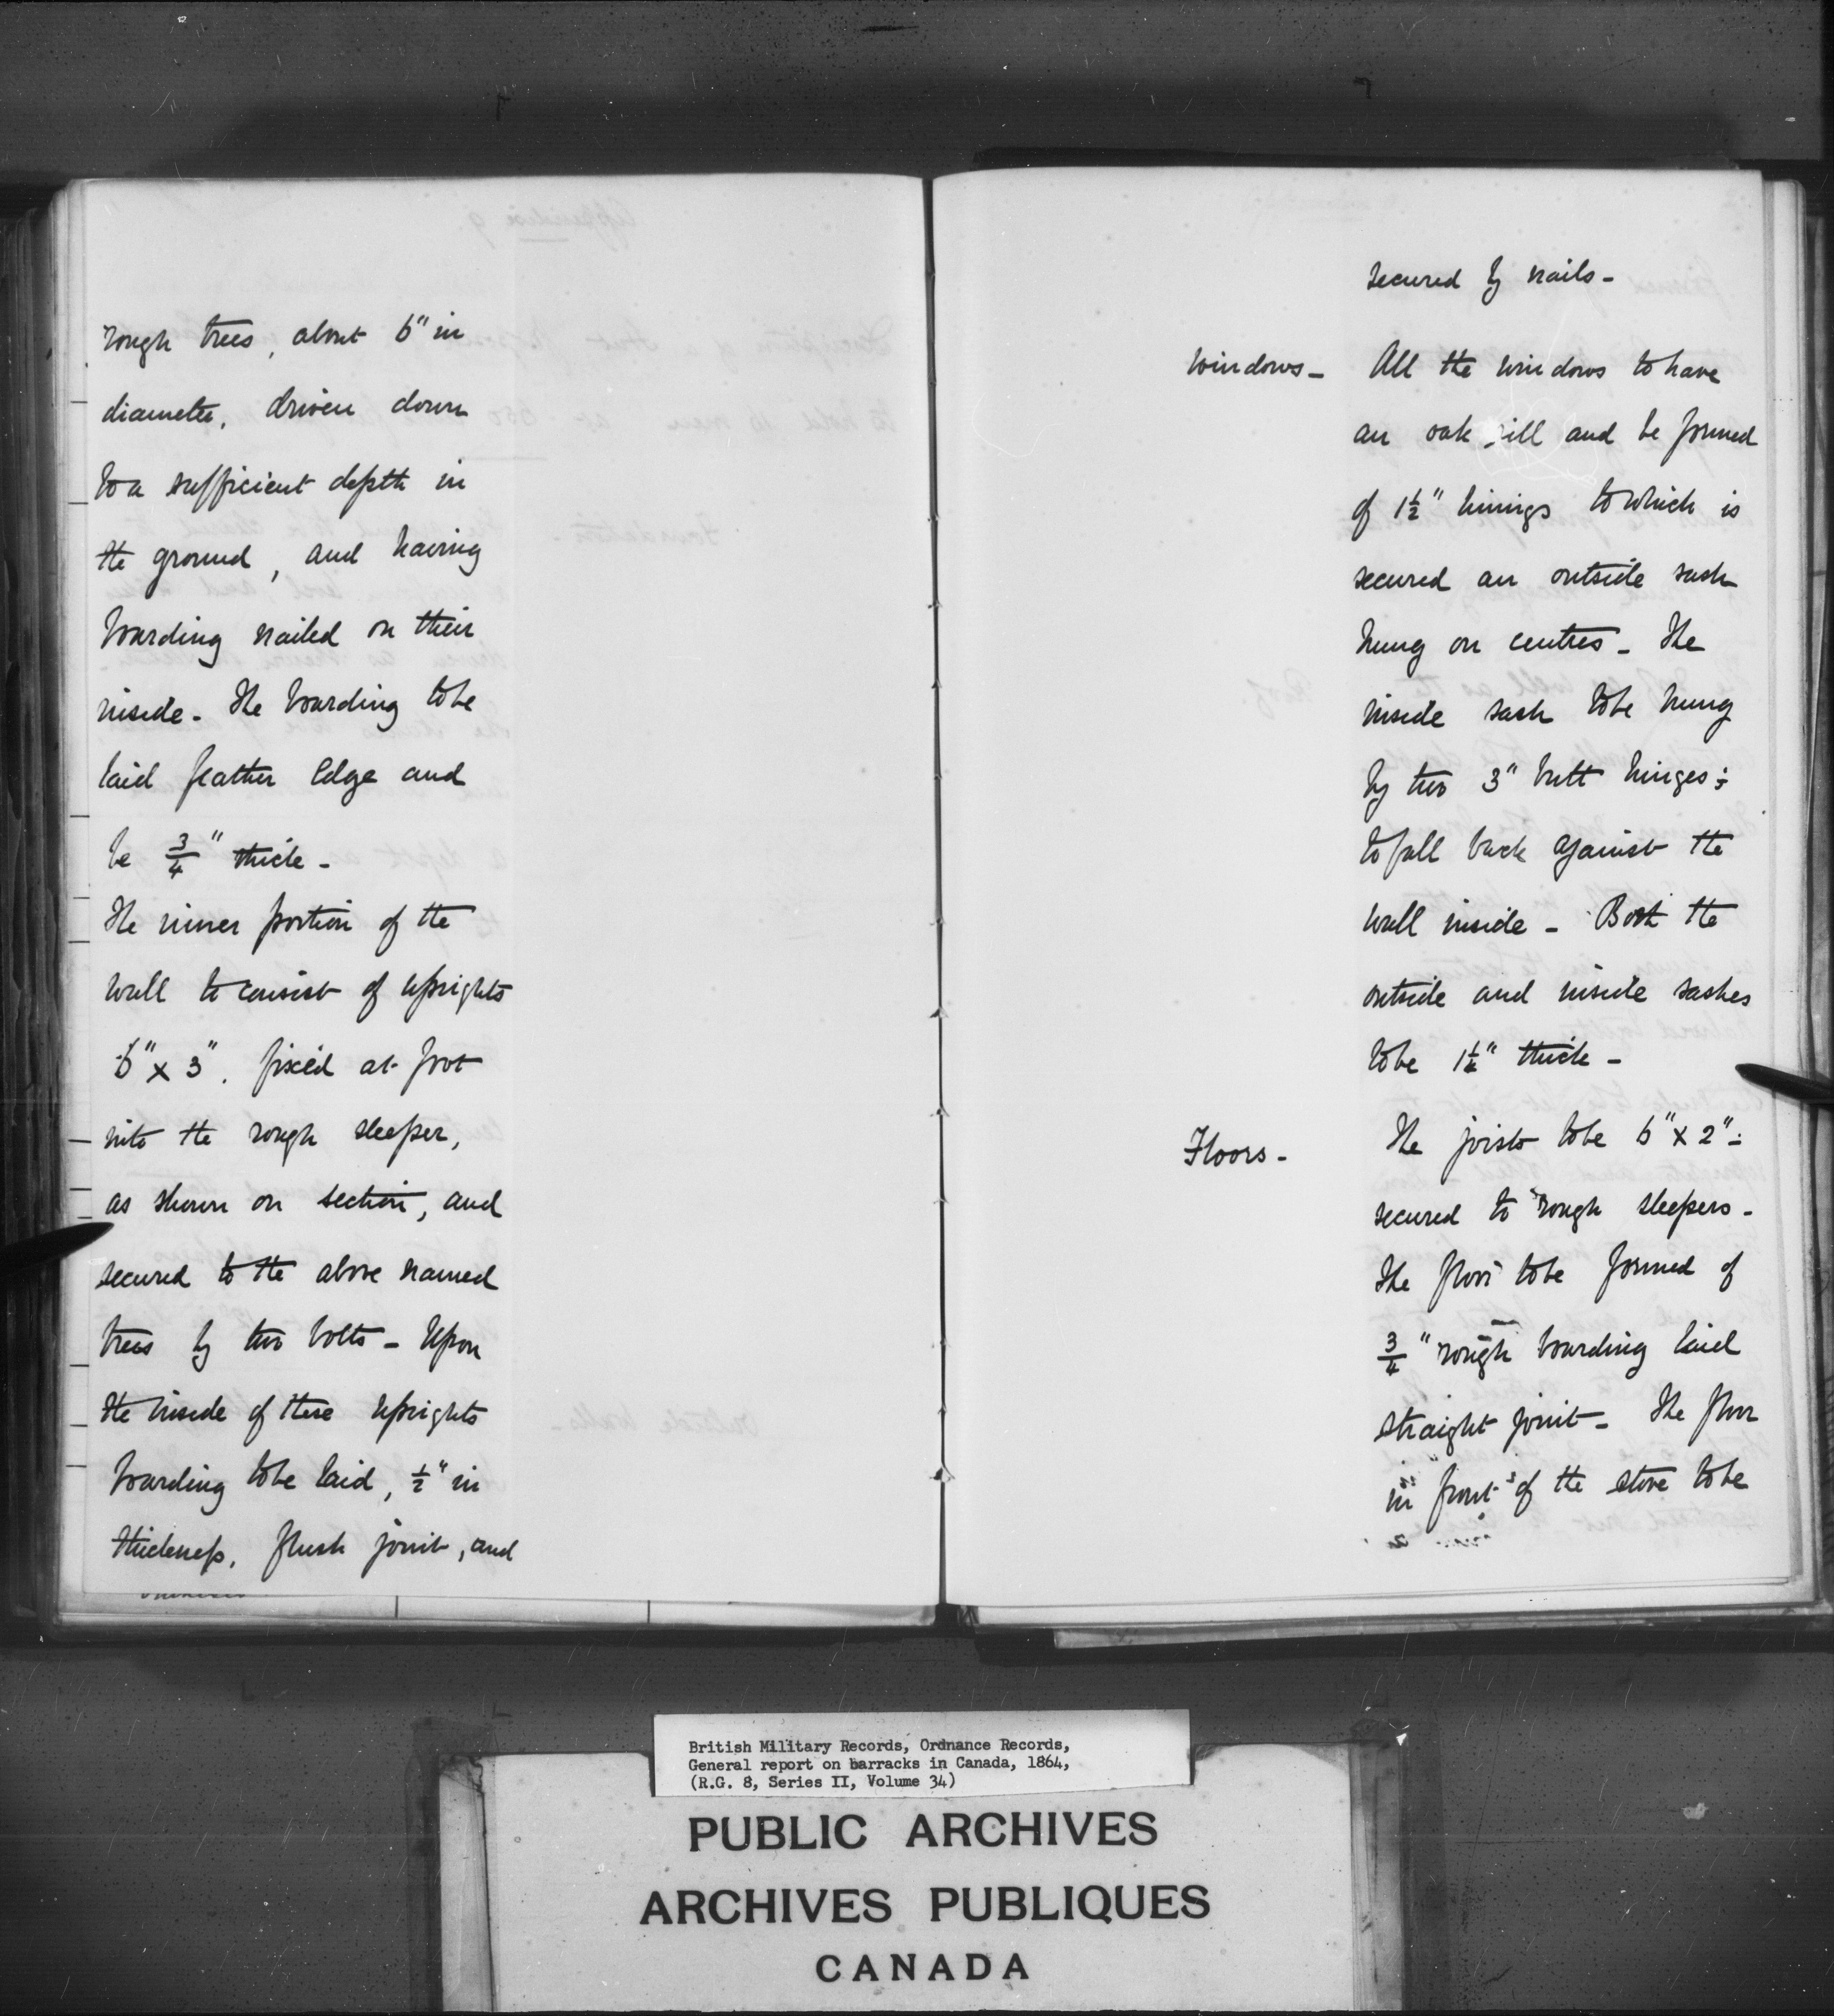 rough trees, about 6" in
diameter, driven down
to a sufficient depth in
the ground, and having
boarding nailed on their
inside. The boarding to be
laid feather edge and
be 3/4" thick -
The inner portion of the
wall to consist of uprights
6" x 3", fixed at foot
into the rough sleeper,
as shown on section, and
secured to the above named
trees by two bolts - Upon
the inside of these uprights
boarding to be laid, 1/2" in
thickness, flush joint, and
secured by nails -
Windows - All the windows to have
an oak sill and be formed
of 1 1/2" linings to which is
secured an outside sash
hung on centres - The
inside sash to be hung
by two 3" butt hinges:
to fall back against the
wall inside - Both the
outside and inside sashes
to be 1 1/4" thick -
Floors - The joists to be 6" x 2":
secured to rough sleepers -
The floor to be formed of
3/4" rough boarding laid
straight joint - The floor
in front of the stove to be
British Military Records, Ordnance Records,
General report on barracks in Canada, 1864,
(R.G. 8, Series II, Volume 34)
PUBLIC ARCHIVES
ARCHIVES PUBLIQUES
CANADA